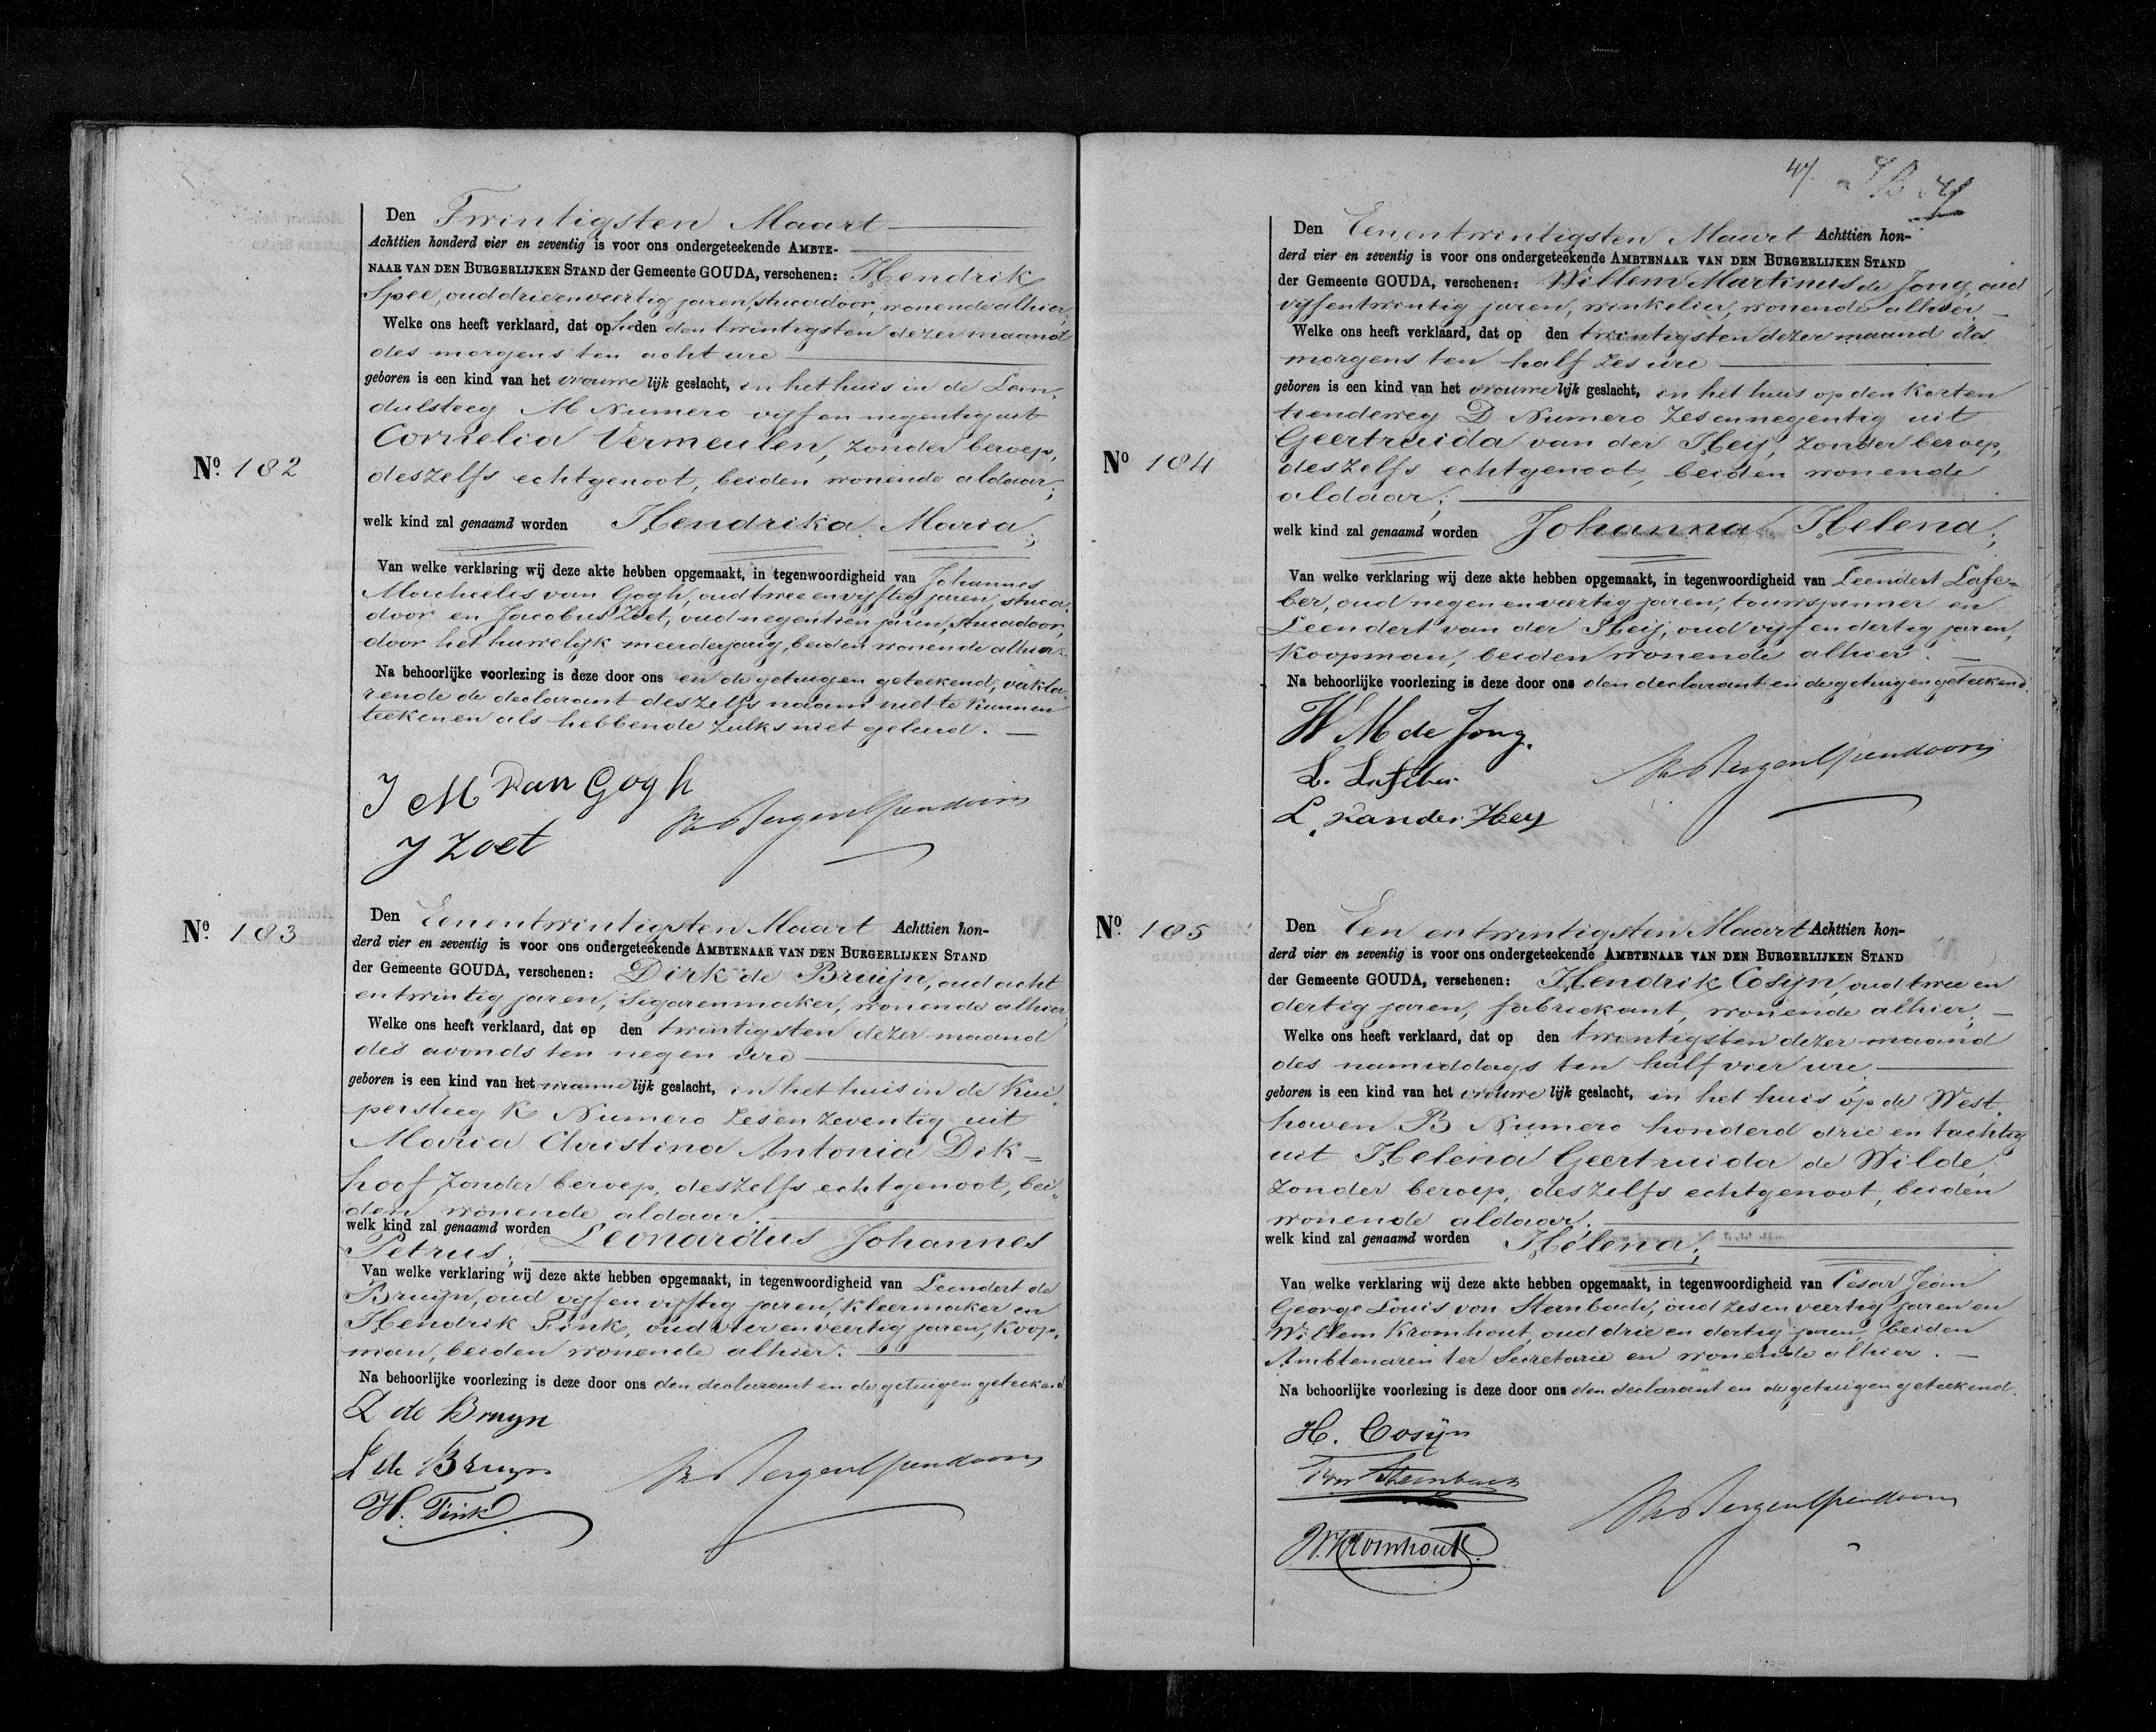 Den Twintigsten Maart
Achttien honderd vier en zeventig is voor ons ondergeteekende AMBTE-
NAAR VAN DEN BURGERLIJKEN STAND der Gemeente GOUDA, verschenen: Hendrik
Spee, oud drieenveertig jaren, stucadoor, wonende alhier;
Welke ons heeft verklaard, dat op heden den twintigsten dezer maand
des morgens ten acht ure
geboren is een kind van het vrouwelijk geslacht, in het huis in de Lem-
dulsteeg M Numero vijf en negentig uit
Cornelia Vermeulen, zonder beroep,
deszelfs echtgenoot, beiden wonende aldaar;
No. 182
welk kind zal genaamd worden Hendrika Maria;
Van welke verklaring wij deze akte hebben opgemaakt, in tegenwoordigheid van Johannes
Machielis van Gogh, oud twee en vijftig jaren, stuca-
door en Jacobus Zoet, oud negentien jaren, stucadoor,
door het huwelijk meerderjarig, beiden wonende alhier.
Na behoorlijke voorlezing is deze door ons en de getuigen geteekend, verkla-
rende de declarant deszelfs naam niet te kunnen
teekenen als hebbende zulks niet geleerd.
J M van Gogh
J Zoet
No. 183
Den Eenentwintigsten Maart Achttien hon-
derd vier en zeventig is voor ons ondergeteekende AMBTENAAR VAN DEN BURGERLIJKEN STAND
der Gemeente GOUDA, verschenen: Dirk de Bruijn, oud acht
en twintig jaren, Sigarenmaker, wonende alhier;
Welke ons heeft verklaard, dat op den twintigsten dezer maand
des avonds ten negen ure
geboren is een kind van het mannelijk geslacht, in het huis in de Kui-
persteeg K Numero zesenzeventig uit
Maria Christina Antonia Dik=
hoof, zonder beroep, deszelfs echtgenoot, bei-
den wonende aldaar.
welk kind zal genaamd worden Leonardus Johannes
Petrus;
Van welke verklaring wij deze akte hebben opgemaakt, in tegenwoordigheid van Leendert de
Bruijn, oud vijf en vijftig jaren, kleermaker en
Hendrik Fink, oud vier en veertig jaren, Koop-
man, beiden wonende alhier.
Na behoorlijke voorlezing is deze door ons den declarant en de getuigen geteekend
D de Bruyn
L de Bruyn
H. Fink
47.
Den Eenentwintigsten Maart Achttien hon-
derd vier en zeventig is voor ons ondergeteekende AMBTENAAR VAN DEN BURGERLIJKEN STAND
der Gemeente GOUDA, verschenen: Willem Martinus de Jong, oud
vijfentwintig jaren, winkelier, wonende alhier,
Welke ons heeft verklaard, dat op den twintigsten dezer maand des
morgens ten half zes ure
geboren is een kind van het vrouwelijk geslacht, in het huis op den Korten
tiendeweg D Numero zesennegentig uit
Geertruida van der Heij, zonder beroep,
deszelfs echtgenoot, beiden wonende
aldaar;
No 184
welk kind zal genaamd worden Johanna Helena;
Van welke verklaring wij deze akte hebben opgemaakt, in tegenwoordigheid van Leendert Lafe=
ber, oud negen en veertig jaren, touwspinner en
Leendert van der Heij, oud vijf en dertig jaren,
Koopman, beiden wonende alhier.
Na behoorlijke voorlezing is deze door ons den declarant en de getuigen geteekend.
W M de Jong.
L. Lafeber
L. van der Heij
No 185
Den Een en twintigsten Maart Achttien hon-
derd vier en zeventig is voor ons ondergeteekende AMBTENAAR VAN DEN BURGERLIJKEN STAND
der Gemeente GOUDA, verschenen: Hendrik Cosijn, oud twee en
dertig jaren, fabriekant, wonende alhier;
Welke ons heeft verklaard, dat op den twintigsten dezer maand
des namiddags ten half vier ure
geboren is een kind van het vrouwelijk geslacht, in het huis op de West-
haven B Numero honderd drie en tachtig
uit Helena Geertruida de Wilde,
zonder beroep, deszelfs echtgenoot, beiden
wonende aldaar.
welk kind zal genaamd worden Helena;
Van welke verklaring wij deze akte hebben opgemaakt, in tegenwoordigheid van Cesar Jean
George Louis von Sternbach, oud zesenveertig jaren en
Willem Kromhout, oud drie en dertig jaren, beiden
Ambtenaren ter Secretarie en wonende alhier.
Na behoorlijke voorlezing is deze door ons den declarant en de getuigen geteekend.
H. Cosijn
von Sternbach
W. Kromhout.